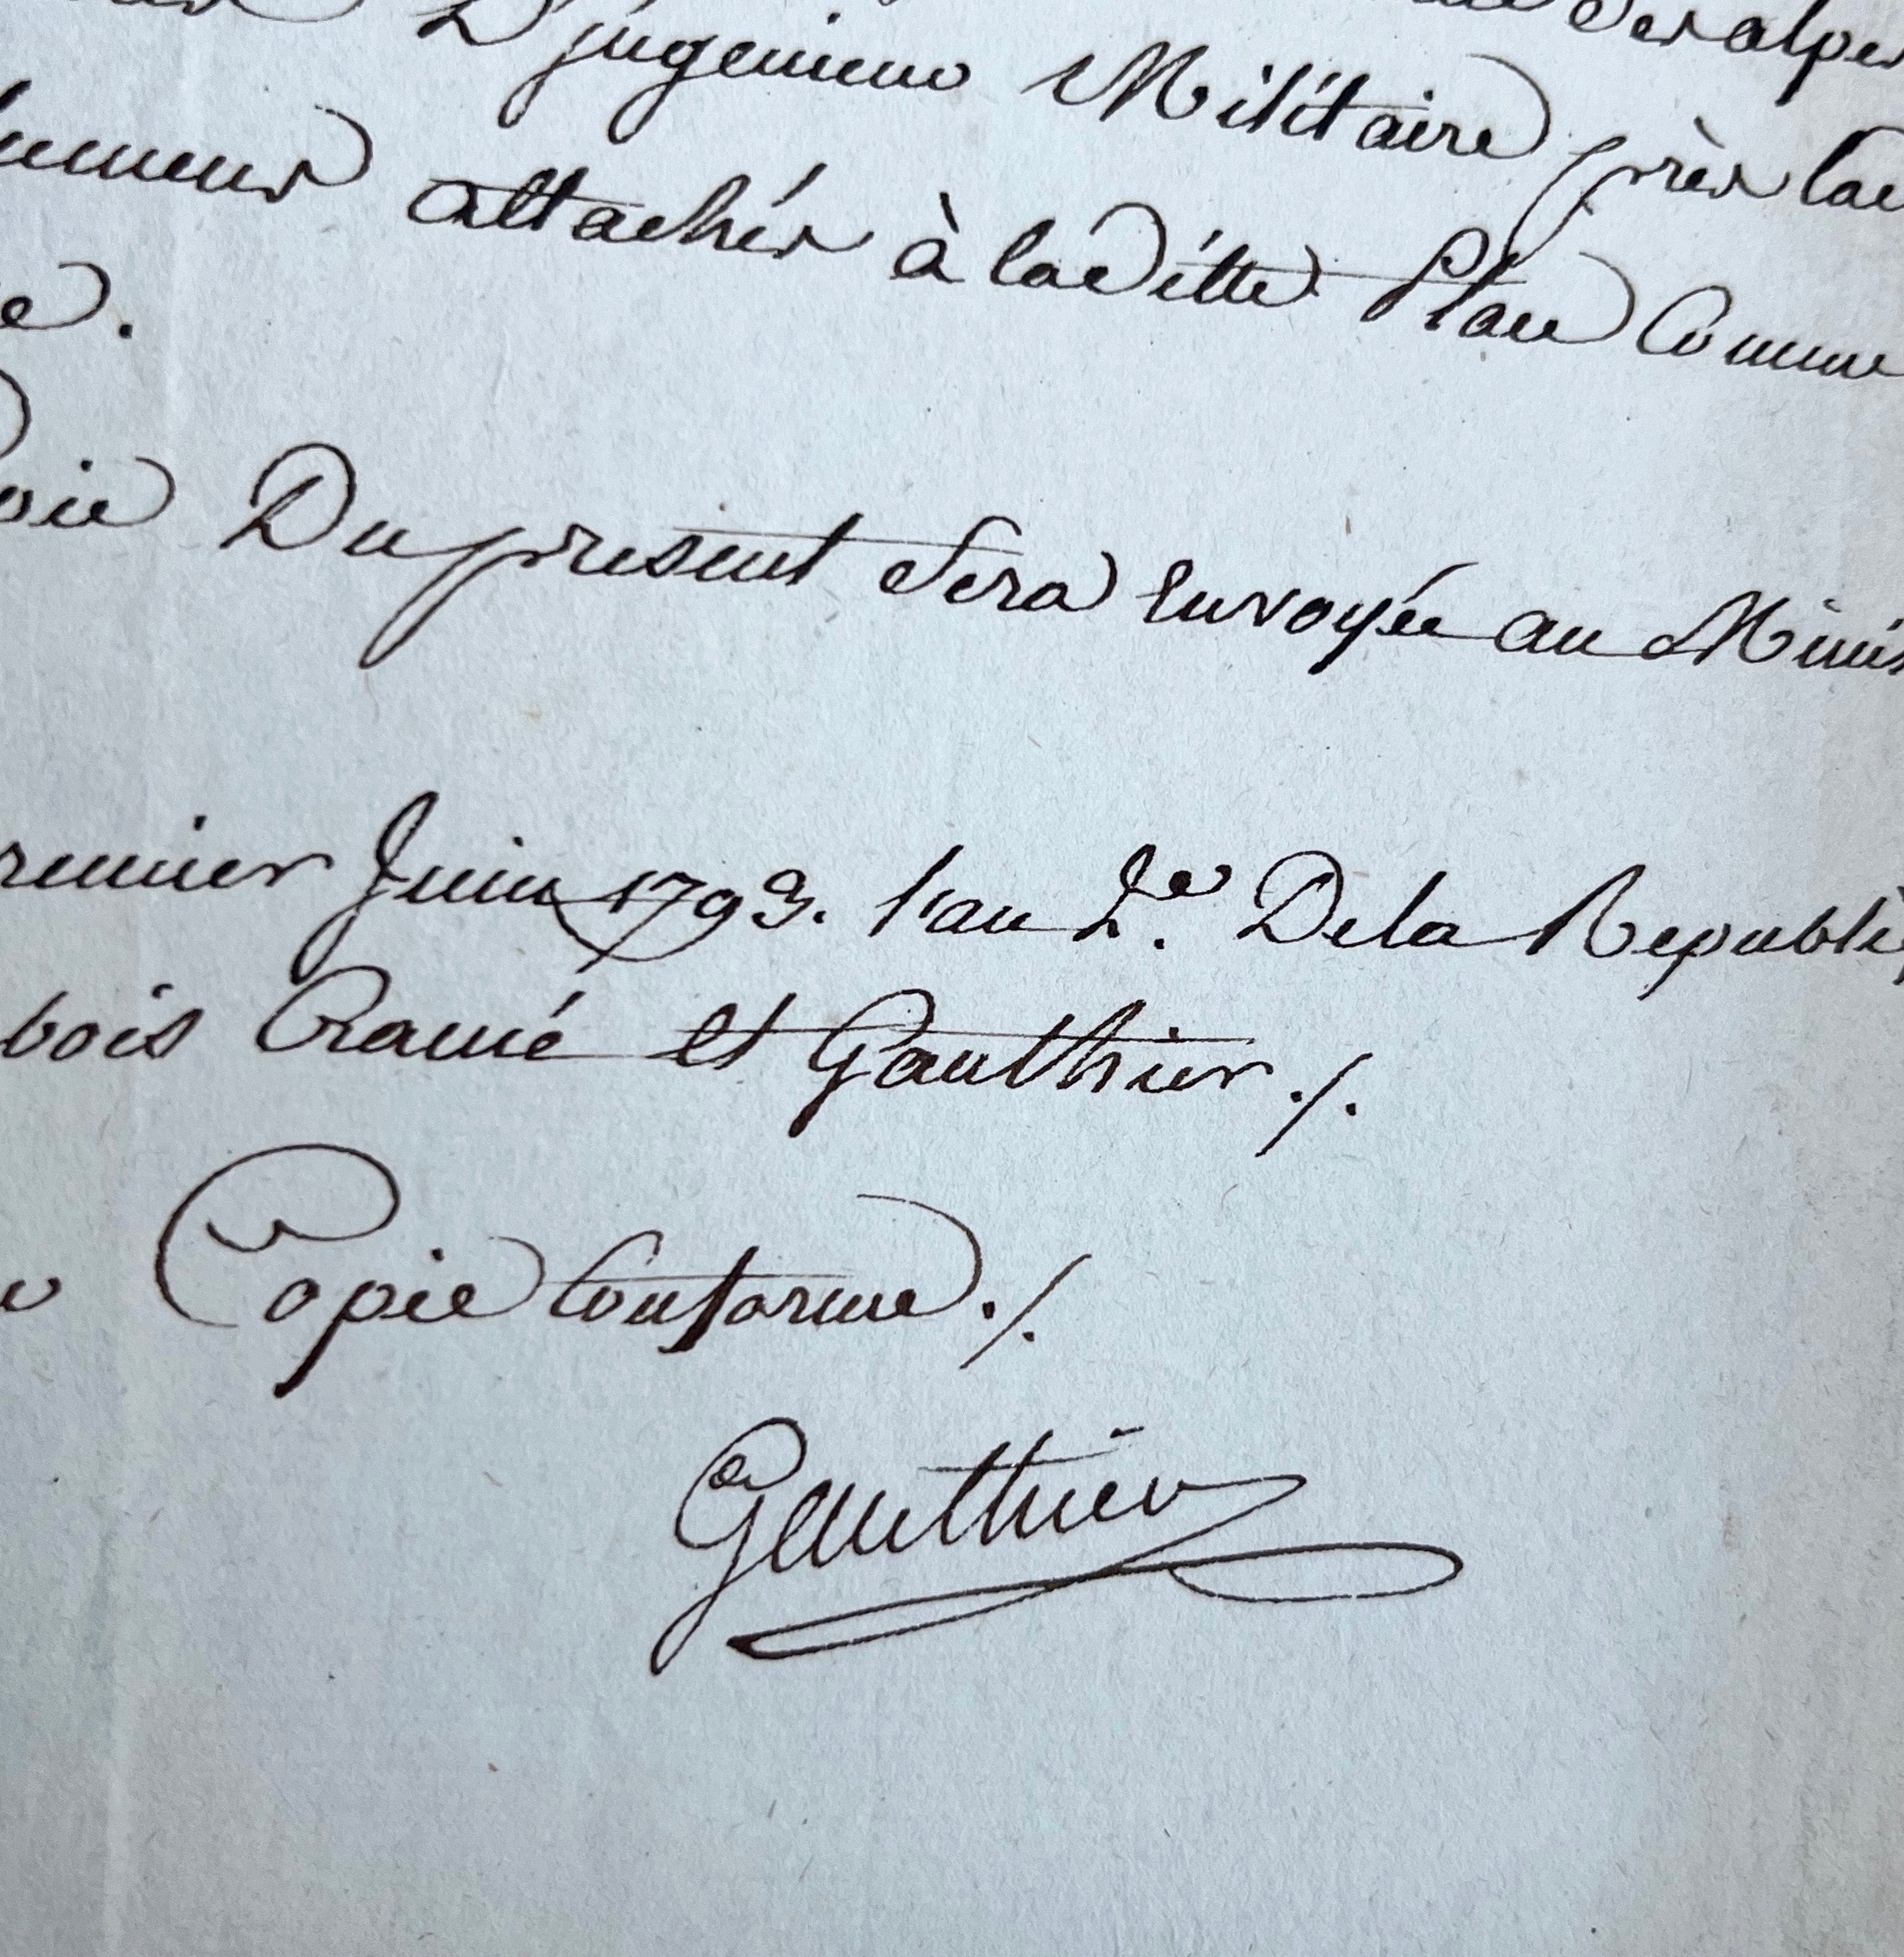 Des alpes
D'jngenieur Militaire près la
attachés à la Ditte Place Comme
e.
pie Du present Sera Envoyée au Minis
remier Juin 1793. l'an 2e. De la Republi
bois Crancé et Gauthier ./.
Copie Conforme ./.
Gauthier